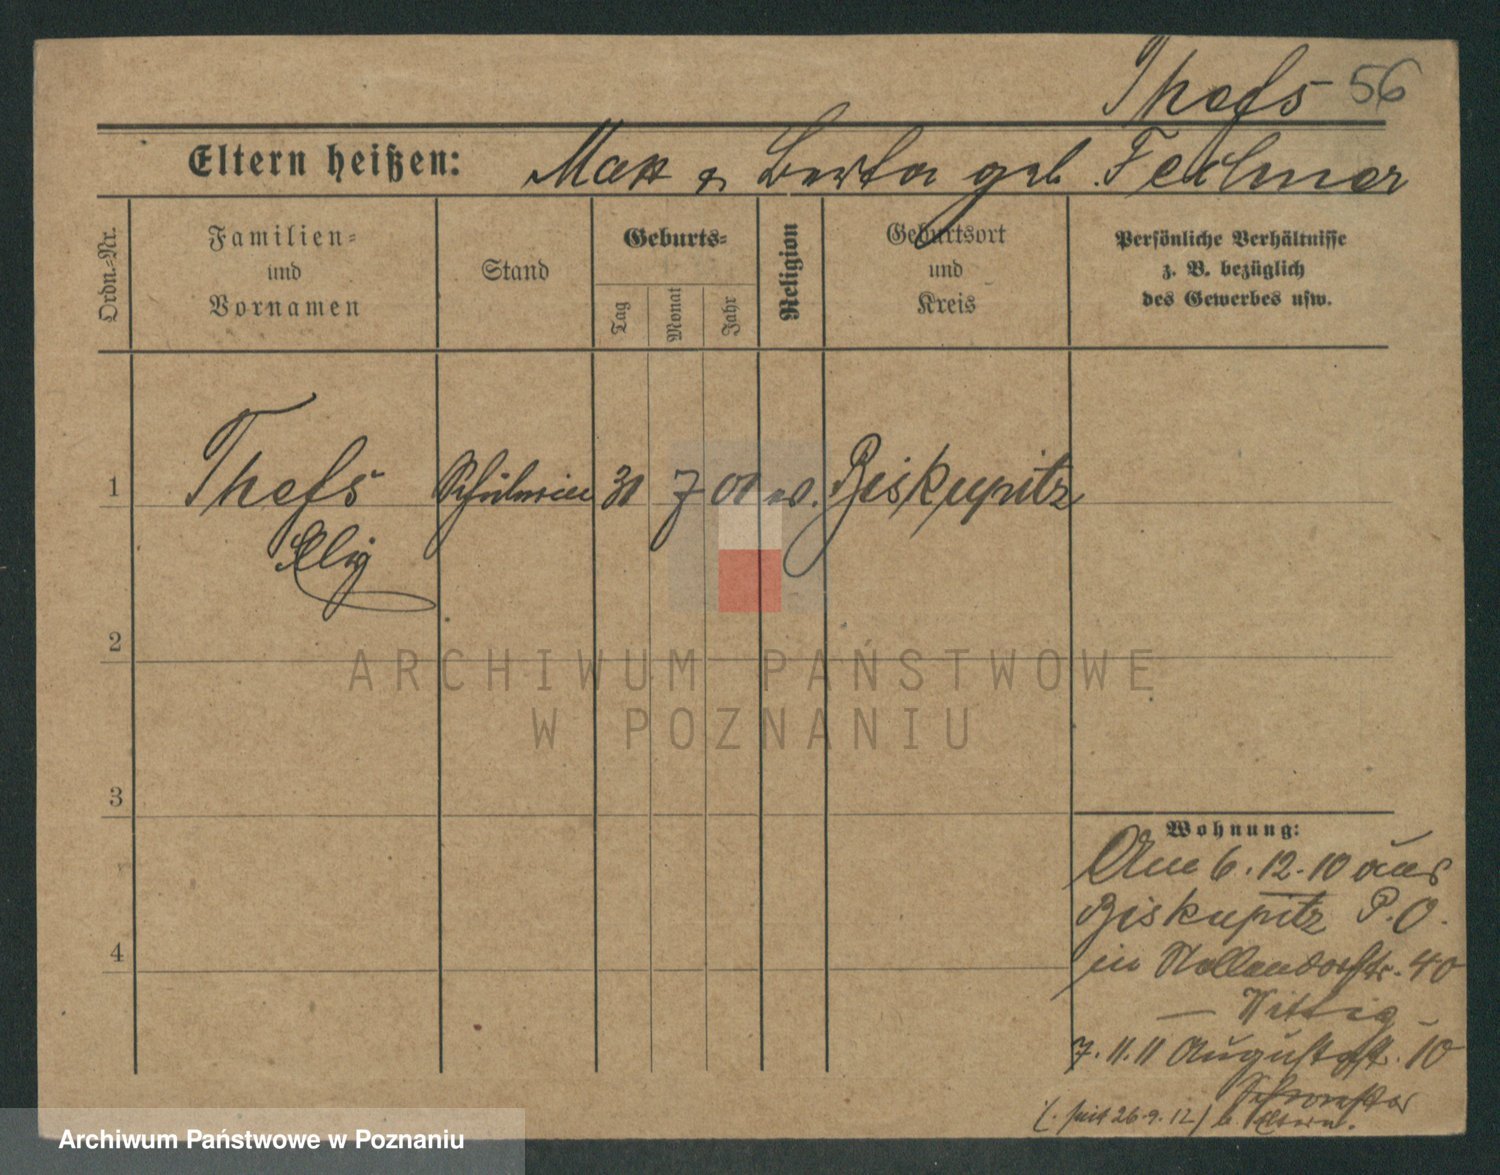 Thefs 56
Eltern heißen: Max & Berta geb. Fechner
Ordn.-Nr.
Familien-
und
Vornamen
Stand
Geburts-
Tag
Monat
Jahr
Religion
Geburtsort
und
Kreis
Persönliche Verhältnisse
z. B. bezüglich
des Gewerbes usw.
1
Thefs Schülerin 31 7 00 ev. Biskupitz
Elly
2
ARCHIWUM PAŃSTWOWE
W POZNANIU
3
Wohnung:
Am 6.12.10 aus
Biskupitz P. O.
4
in Nollendorfstr. 40
— Wittig —
7.11.11 Augustastr. 10
Schwester
(. seit 26.9.12) b. Eltern.
Archiwum Państwowe w Poznaniu